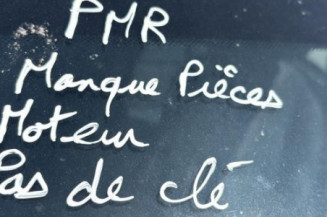 PMR
Manque Pièces
Moteur
Pas de clé